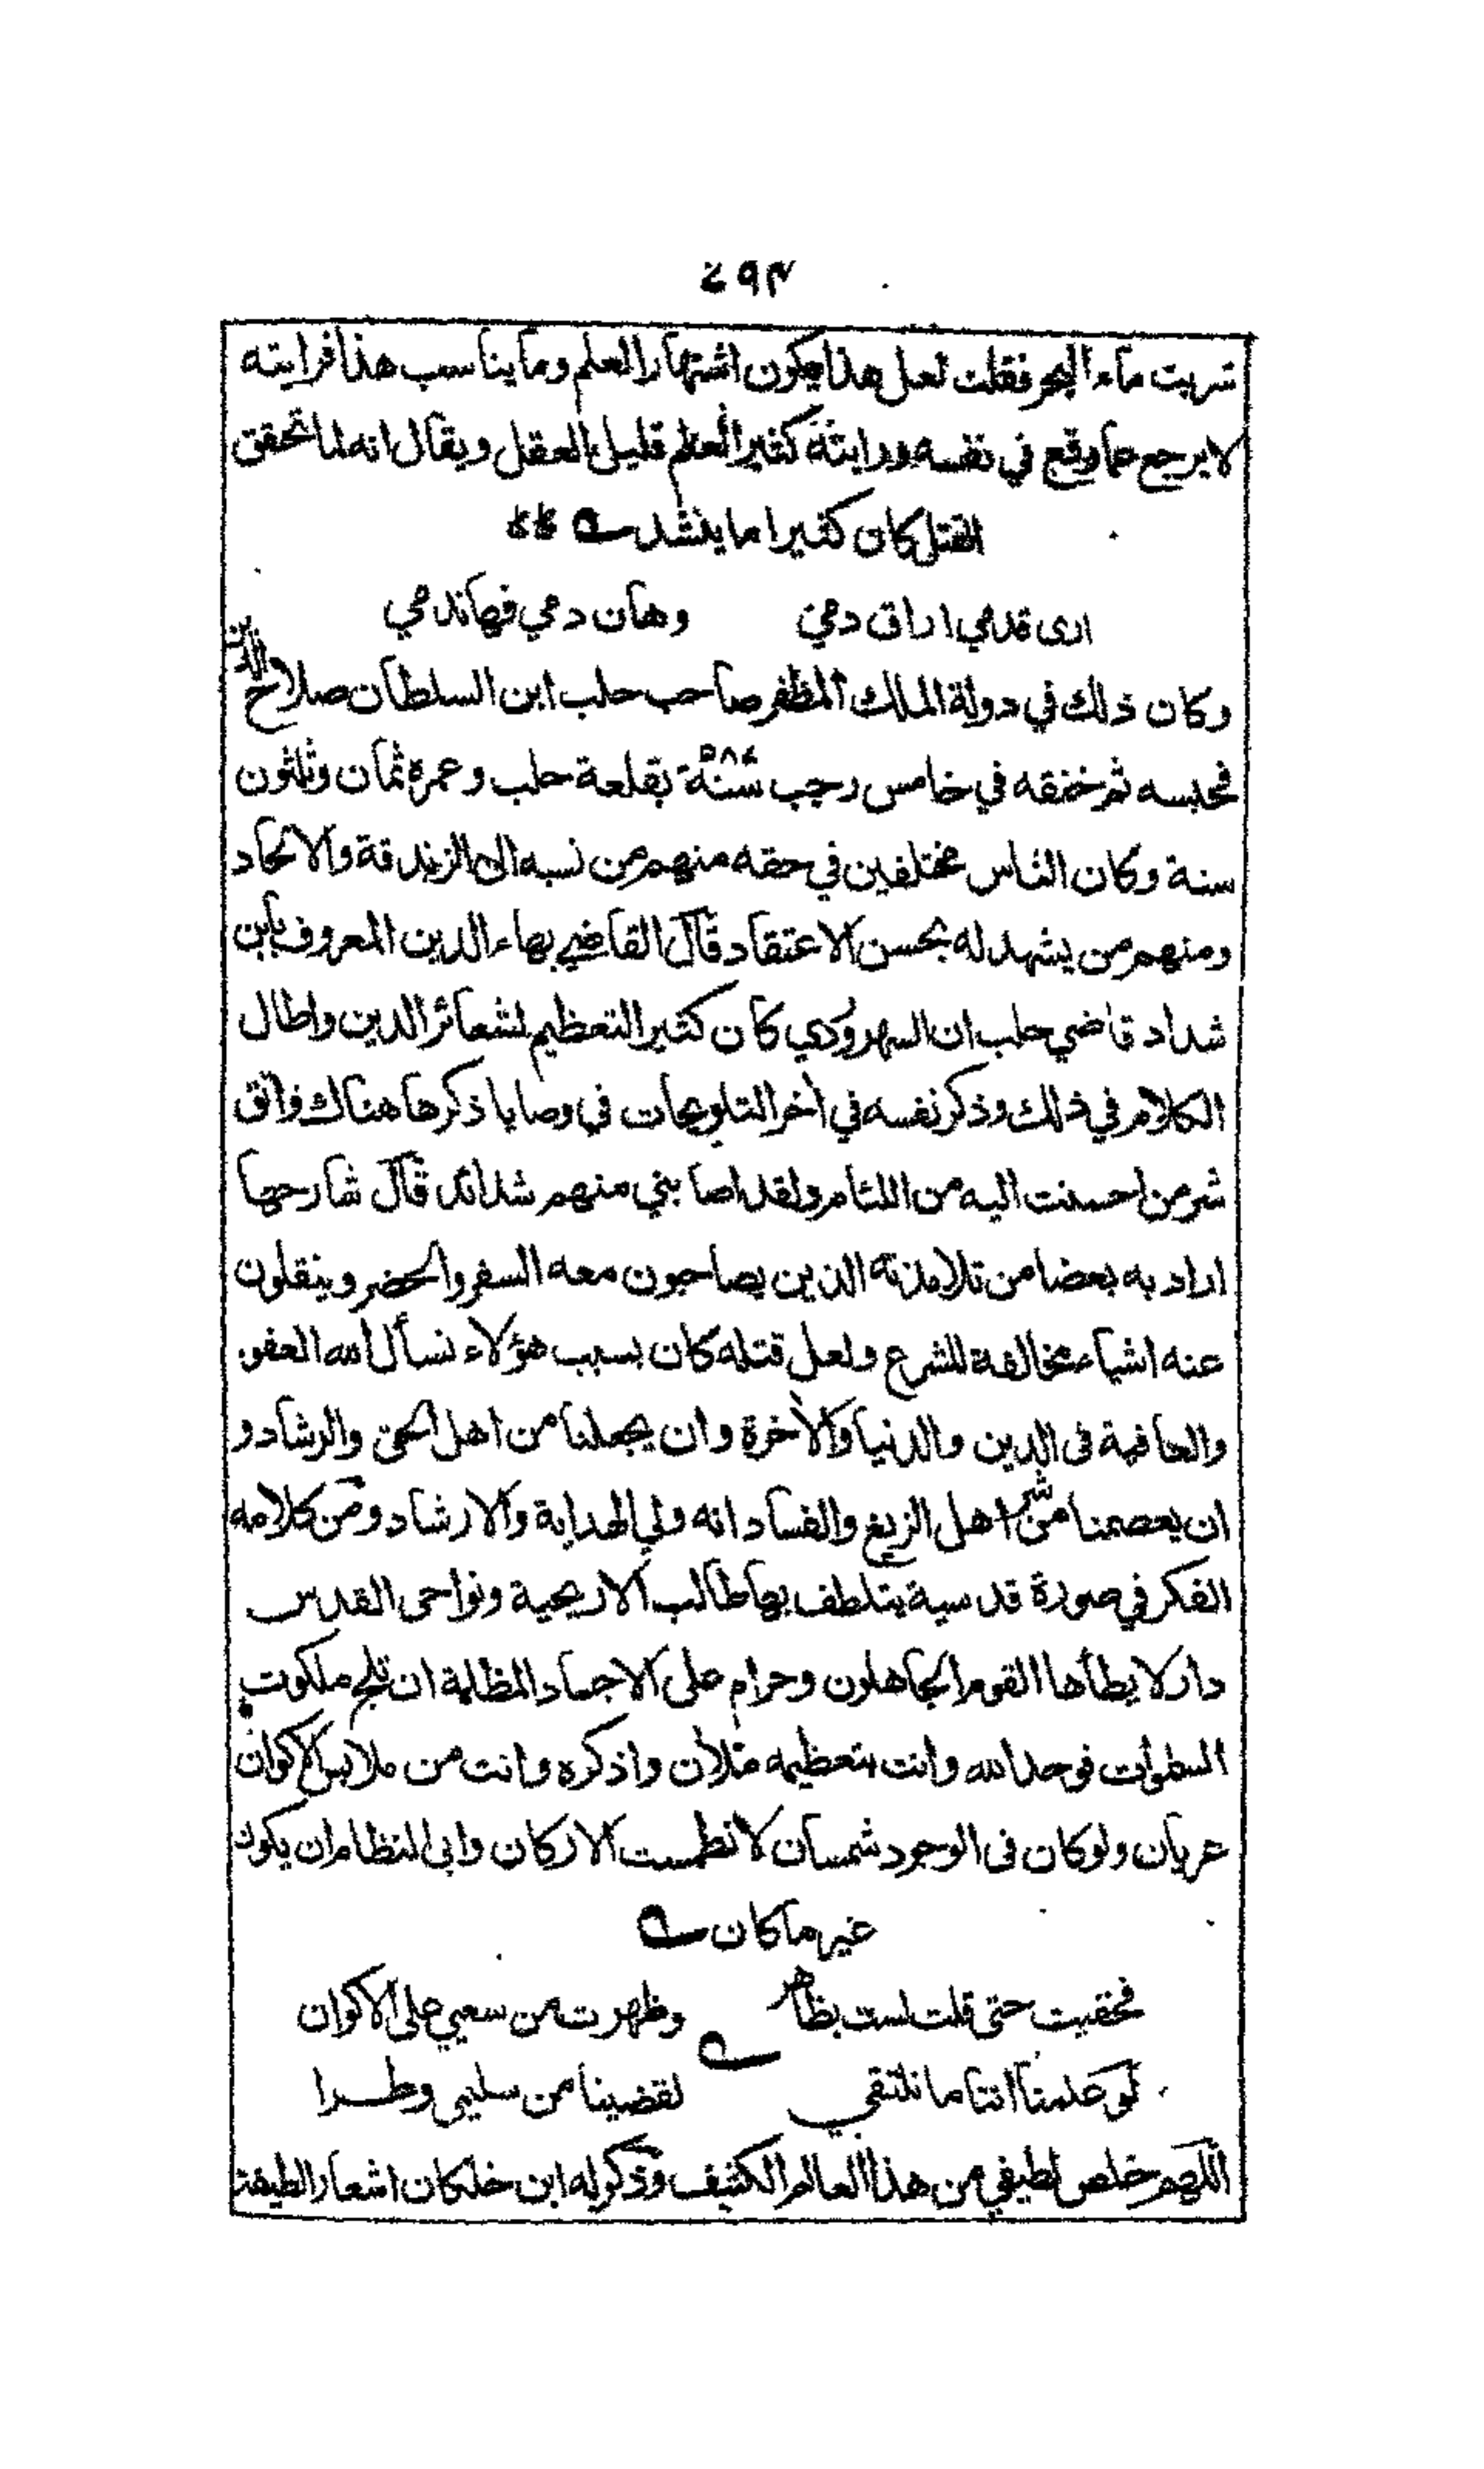 ٤٩٣
شربت ماء البحر فقلت لعل هذا يكون اشتهار العلم وما يناسب هذا فرايته
لا يرجع عما وقع في نفسه ورايته كثير العلم قليل العقل ويقال انه لما تحقق
القتل كان كثيرا ما ينشد
ارى قدمي اراق دمي وهان دمي فها ندمي
وكان ذلك في دولة الملك المظفر صاحب حلب ابن السلطان صلاح الدين
فحبسه ثم خنقه في خامس رجب سنة ٥٨٤ بقلعة حلب وعمره ثمان وثلثون
سنة وكان الناس مختلفين في حقه منهم من نسبه الى الزندقة والالحاد
ومنهم من يشهد له بحسن الاعتقاد قال القاضي بهاء الدين المعروف بابن
شداد قاضي حلب ان السهروردي كان كثير التعظيم لشعائر الدين واطال
الكلام في ذلك وذكر نفسه في أخر التلويحات في وصايا ذكرها هناك فاتق
شر من احسنت اليه من اللئام ولقد اصابني منهم شدائد قال شارحها
اراد به بعضا من تلامذته الذين يصاحبون معه السفر والحضر وينقلون
عنه اشياء مخالفة للشرع ولعل قتله كان بسبب هؤلاء نسأل الله العفو
والعافية فى الدين والدنيا والأخرة وان يجعلنا من اهل الحق والرشاد و
ان يعصمنا من شر اهل الزيغ والفساد انه ولي الهداية والارشاد ومن كلامه
الفكر في صورة قدسية يتلطف بها طالب الاريحية ونواحى القدس
دار لا يطأها القوم الجاهلون وحرام على الاجساد المظلمة ان تلج ملكوت
السموات فوحد الله وانت بتعظيمه ملأن واذكره وانت من ملابس الاكوان
عريان ولو كان فى الوجود شمسان لانطمست الاركان وابى النظام ان يكون
غير ما كان
فخفيت حتى قلت لست بظاهر وظهرت من سعيي على الاكوان
لو علمنا اننا ما نلتقي لقضينا من سليمى وطرا
اللهم خلص لطيفي من هذا العالم الكثيف وذكر له ابن خلكان اشعارا لطيفة